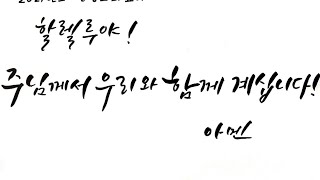 할렐루야!
주님께서 우리와 함께 계십니다!
아멘